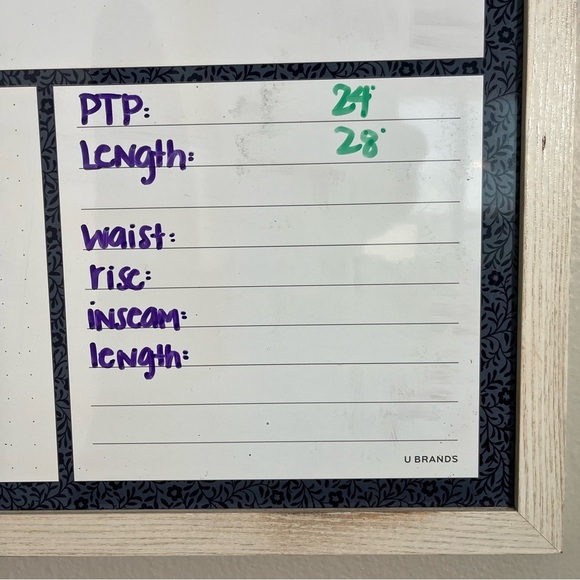 PTP: 24"
Length: 28"
waist:
rise:
inseam:
length:
U BRANDS